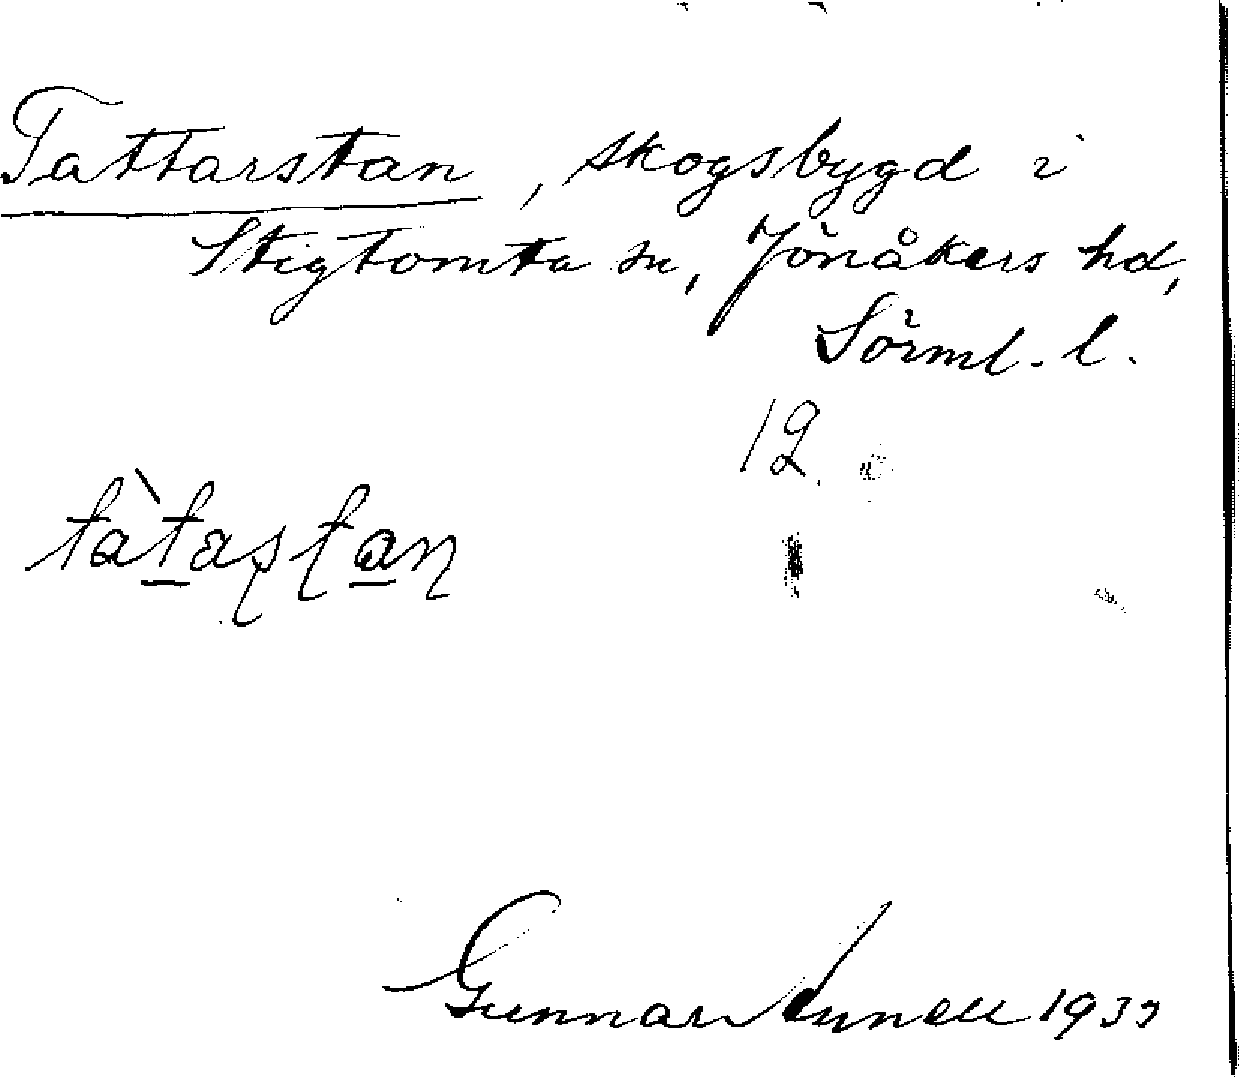 Tattarstan, skogsbygd i
Stigtomta sn, Jönåkers hd,
Sörml. l.
12.
tàtaʂtan
Gunnar 193